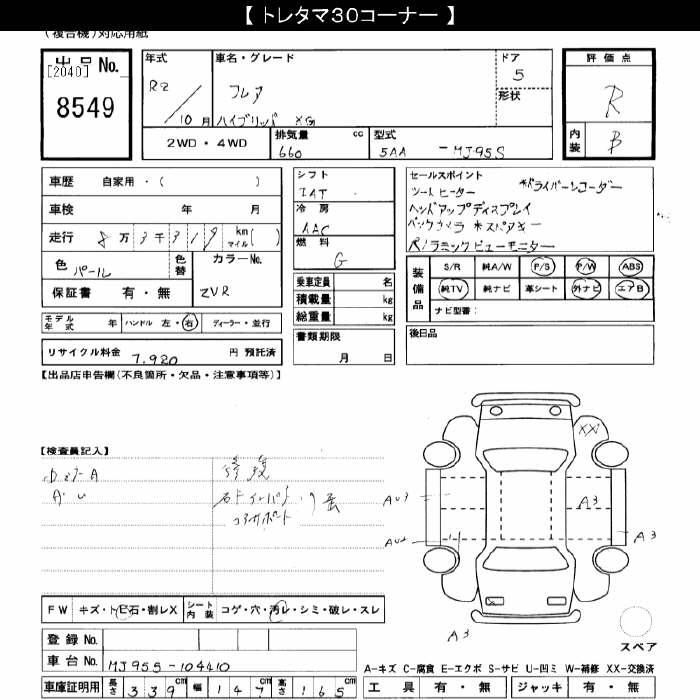 【 トレタマ30コーナー 】
(複合機)対応用紙
出品 No.
[2040]
8549
年式
R2
10 月
車名・グレード
フレア
ハイブリッド XG
ドア
5
形状
評価点
R
内装
B
2WD・4WD
排気量 cc
660
型式
5AA - MJ95S
車歴 自家用・( )
車検 年 月
走行 8 万 3 千 319 km マイル( )
色 パール
色替
カラーNo.
ZVR
保証書 有・無
モデル年式 年 ハンドル 左・右 ディーラー・並行
リサイクル料金 7,920 円 預託済
シフト
IAT
冷房
AAC
燃料
G
乗車定員 名
積載量 kg
総重量 kg
書類期限
月 日
セールスポイント
シートヒーター *ドライバーレコーダー
ヘッドアップディスプレイ
バックカメラ *スペアキー
パノラミックビューモニター
装備品
S/R 純A/W P/S P/W ABS
純TV 純ナビ 革シート 外ナビ エアB
ナビ型番:
後日品
【出品店申告欄(不良箇所・欠品・注意事項等)】
【検査員記入】
A・U
修復
コアサポート
XX
A3
A3
AU2
A3
スペア
FW キズ・トビ石・割レX シート内装 コゲ・穴・汚レ・シミ・破レ・スレ
登録 No.
車台 No. MJ95S-104410
車庫証明用 長さ 339 cm 幅 147 cm 高さ 165 cm
A-キズ C-腐食 E-エクボ S-サビ U-凹ミ W-補修 XX-交換済
工具 有・無 ジャッキ 有・無